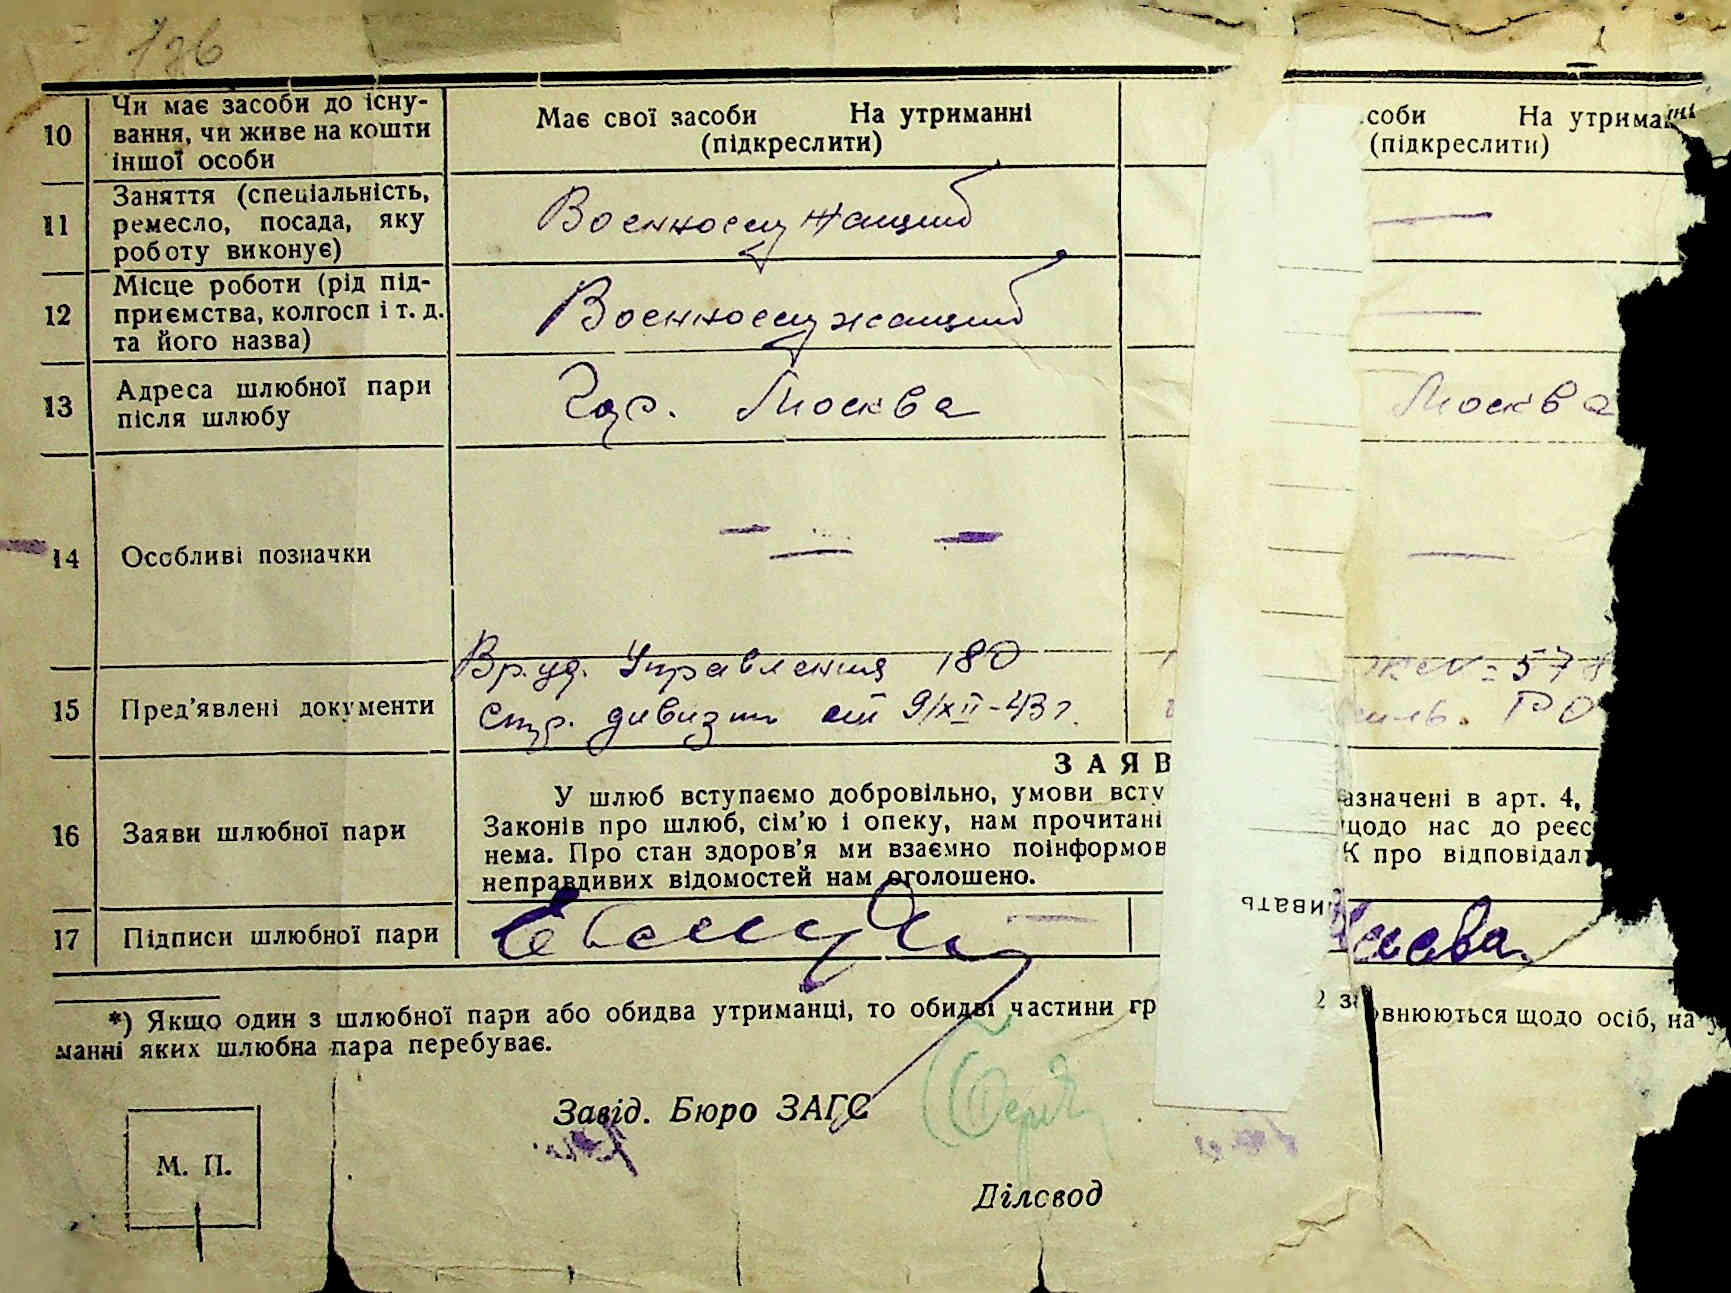 136
10 Чи має засоби до існу-
вання, чи живе на кошти
іншої особи
Має свої засоби На утриманні
(підкреслити)
соби На утриманні
(підкреслити)
11 Заняття (спеціальність,
ремесло, посада, яку
роботу виконує)
Военнослужащий
—
12 Місце роботи (рід під-
приємства, колгосп і т. д.
та його назва)
Военнослужащий
—
13 Адреса шлюбної пари
після шлюбу
гор. Москва
Москва
14 Особливі позначки
— — —
—
15 Пред'явлені документи
Вр. уд. Управления 180
стр. дивизии от 9/XII-43 г.
№ 578
РО
16 Заяви шлюбної пари
ЗАЯВ
У шлюб вступаємо добровільно, умови всту азначені в арт. 4,
Законів про шлюб, сім'ю і опеку, нам прочитані щодо нас до реєс
нема. Про стан здоров'я ми взаємно поінформов К про відповідал
неправдивих відомостей нам оголошено.
ивать
17 Підписи шлюбної пари
*) Якщо один з шлюбної пари або обидва утриманці, то обидві частини гр 2 з овнюються щодо осіб, на у
манні яких шлюбна пара перебуває.
Завід. Бюро ЗАГС
М. П.
Діловод